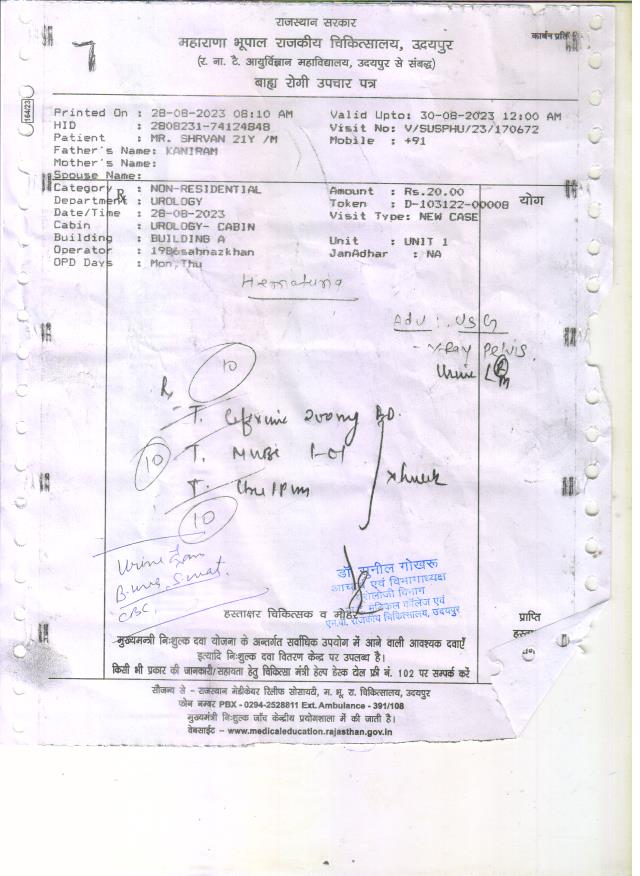 राजस्थान सरकार
कार्बन प्रति
महाराणा भूपाल राजकीय चिकित्सालय, उदयपुर
(र. ना. टै. आयुर्विज्ञान महाविद्यालय, उदयपुर से संबद्ध)
बाह्य रोगी उपचार पत्र
7
164/23
Printed On : 28-08-2023 08:10 AM Valid Upto: 30-08-2023 12:00 AM
HID : 2808231-74124848 Visit No: V/SUSPHU/23/170672
Patient : MR. SHRVAN 21Y /M Mobile : +91
Father's Name: KANIRAM
Mother's Name:
Spouse Name:
Category : NON-RESIDENTIAL Amount : Rs.20.00
Department : UROLOGY Token : D-103122-00008 योग
Date/Time : 28-08-2023 Visit Type: NEW CASE
Cabin : UROLOGY- CABIN
Building : BUILDING A Unit : UNIT 1
Operator : 1986sahnazkhan JanAdhar : NA
OPD Days : Mon,Thu
Hematuria
Adv : USG
- X-Ray Pelvis.
Urine
10
T. 200mg BD.
10 T. 1-01
T.
10
Urine
CBC.
डॉ सुनील गोखरू
आचार्य एवं विभागाध्यक्ष
यूरोलोजी विभाग
मेडिकल कॉलेज एवं
एम.बी. राजकीय चिकित्सालय, उदयपुर
हस्ताक्षर चिकित्सक व मोहर
प्राप्ति
मुख्यमन्त्री निःशुल्क दवा योजना के अन्तर्गत सर्वाधिक उपयोग में आने वाली आवश्यक दवाएँ
इत्यादि निःशुल्क दवा वितरण केन्द्र पर उपलब्ध है।
किसी भी प्रकार की जानकारी/सहायता हेतु चिकित्सा मंत्री हेल्प डेस्क टोल फ्री नं. 102 पर सम्पर्क करें
सौजन्य से - राजस्थान मेडीकेयर रिलीफ सोसायटी, म. भू. रा. चिकित्सालय, उदयपुर
फोन नम्बर PBX - 0294-2528811 Ext. Ambulance - 391/108
मुख्यमंत्री निःशुल्क जाँच केन्द्रीय प्रयोगशाला में की जाती है।
वेबसाईट – www.medicaleducation.rajasthan.gov.in